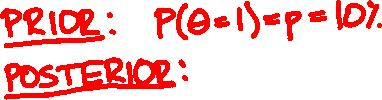 PRIOR: P(θ=1)=p=10%
POSTERIOR: